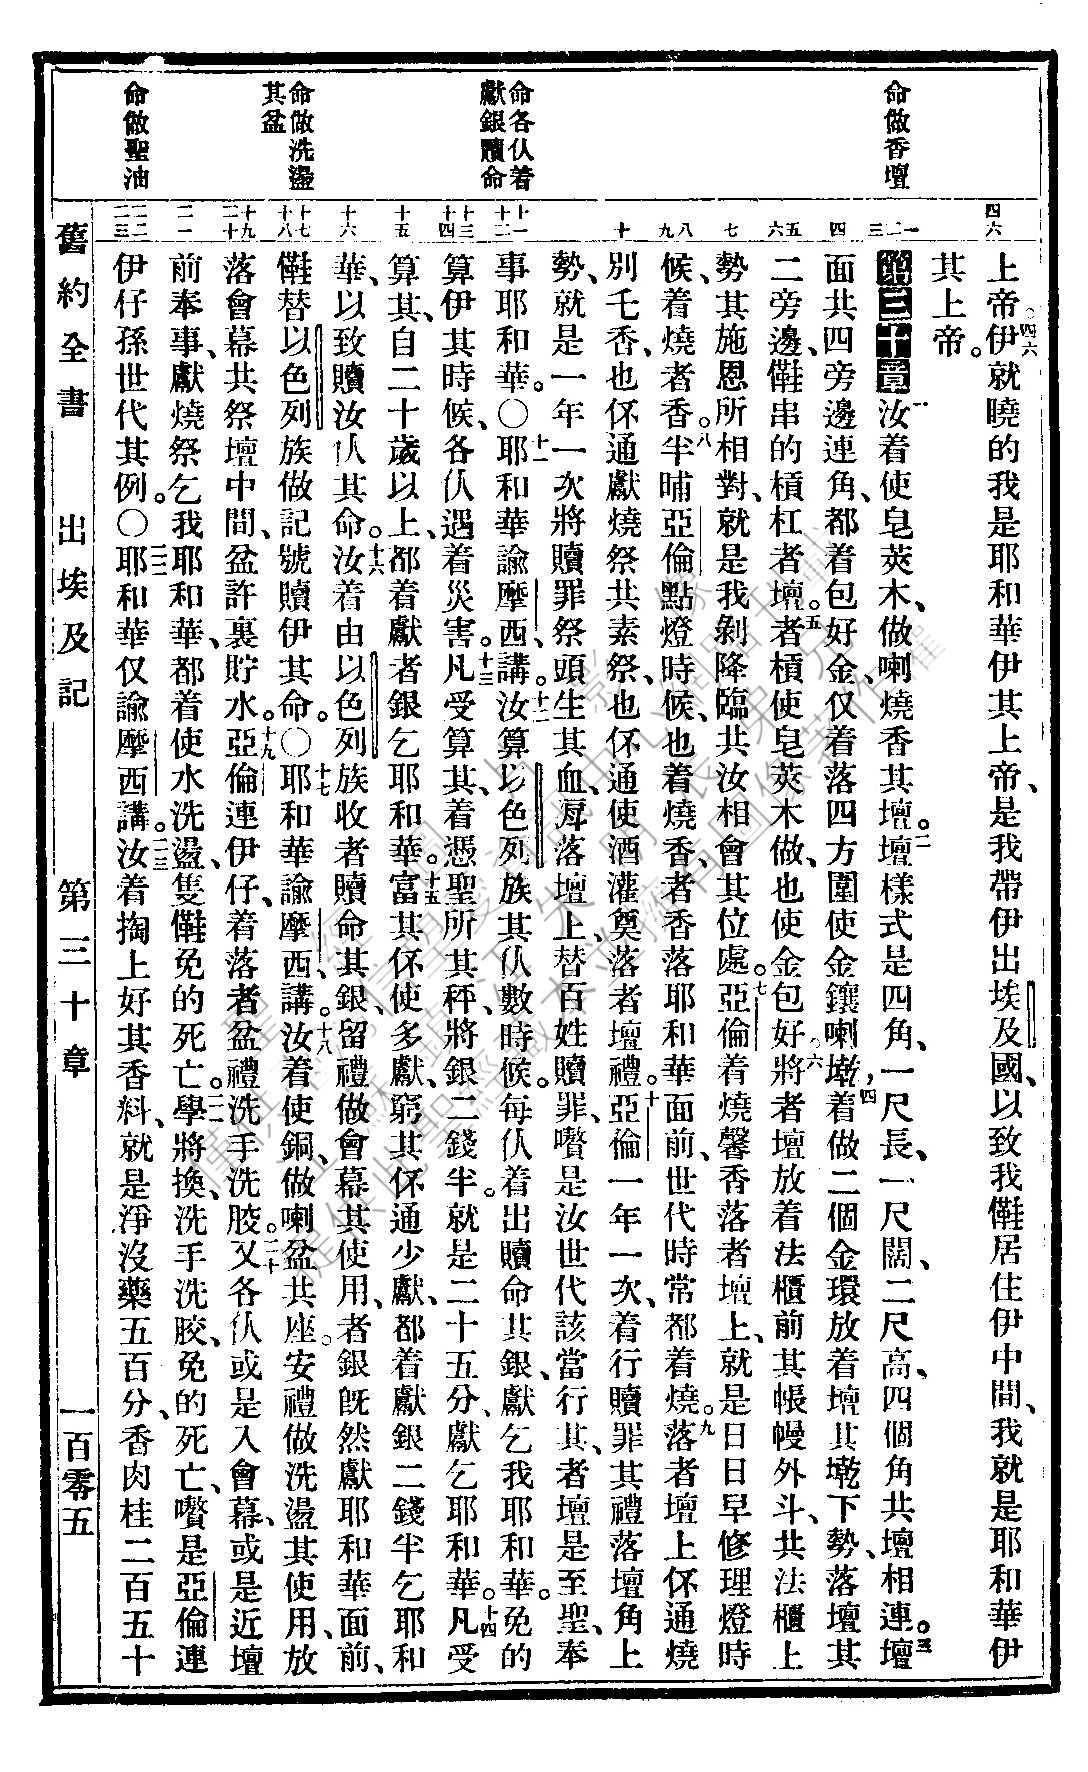 命做香壇
命各仈着
獻銀贖命
命做洗盪
其盆
命做聖油
上帝。四六伊就曉的我是耶和華伊其上帝、是我帶伊出埃及國、以致我𫢗居住伊中間、我就是耶和華伊
其上帝。
第三十章一汝着使皂莢木、做喇燒香其壇。二壇樣式是四角、一尺長、一尺闊、二尺高、四個角共壇相連。三壇
面共四旁邊連角、都着包好金、仅着落四方圍使金鑲喇墘、四着做二個金環放着壇其墘下勢、落壇其
二旁邊、𫢗串的槓杠者壇。五者槓使皂莢木做、也使金包好。六將者壇放着法櫃前其帳幔外斗、共法櫃上
勢其施恩所相對、就是我剝降臨共汝相會其位處。七亞倫着燒馨香落者壇上、就是日日早修理燈時
候、着燒者香。八半晡亞倫點燈時候、也着燒香、者香落耶和華面前、世代時常都着燒。九落者壇上伓通燒
別乇香、也伓通獻燒祭共素祭、也伓通使酒灌奠落者壇禮。十亞倫一年一次、着行贖罪其禮落壇角上
勢、就是一年一次將贖罪祭頭生其血、㝵落壇上、替百姓贖罪、囋是汝世代該當行其、者壇是至聖、奉
事耶和華。〇十一耶和華諭摩西講。十二汝算以色列族其仈數時候。每仈着出贖命其銀、獻乞我耶和華。免的
算伊其時候、各仈遇着災害。十三凡受算其、着憑聖所其秤、將銀二錢半。就是二十五分、獻乞耶和華。十四凡受
算其、自二十歲以上、都着獻者銀乞耶和華。十五富其伓使多獻、窮其伓通少獻、都着獻銀二錢半乞耶和
華、以致贖汝仈其命。十六汝着由以色列族收者贖命其銀、留禮做會幕其使用、者銀旣然獻耶和華面前、
𫢗替以色列族做記號贖伊其命。〇十七耶和華諭摩西講、十八汝着使銅、做喇盆共座。安禮做洗盪其使用、放
落會幕共祭壇中間、盆許裏貯水。十九亞倫連伊仔、着落者盆禮洗手洗骹。二十又各仈或是入會幕、或是近壇
前奉事、獻燒祭乞我耶和華、都着使水洗盪、隻𫢗免的死亡。二一學將換、洗手洗骹、免的死亡、囋是亞倫連
伊仔孫世代其例。〇二二耶和華仅諭摩西講。二三汝着掏上好其香料、就是淨沒藥五百分、香肉桂二百五十
舊約全書　出埃及記　第三十章　一百零五